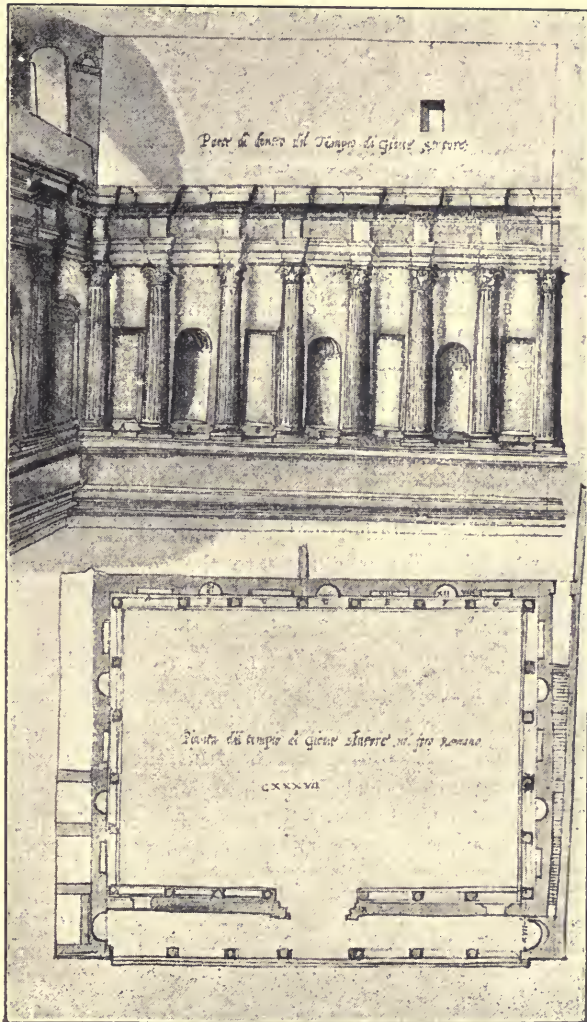 Parte di dentro dil Tempio di Giove Statore
XII
XIII
XII
Pianta dil tempio di Giove Statore in foro Romano
CXXXVII
XVII